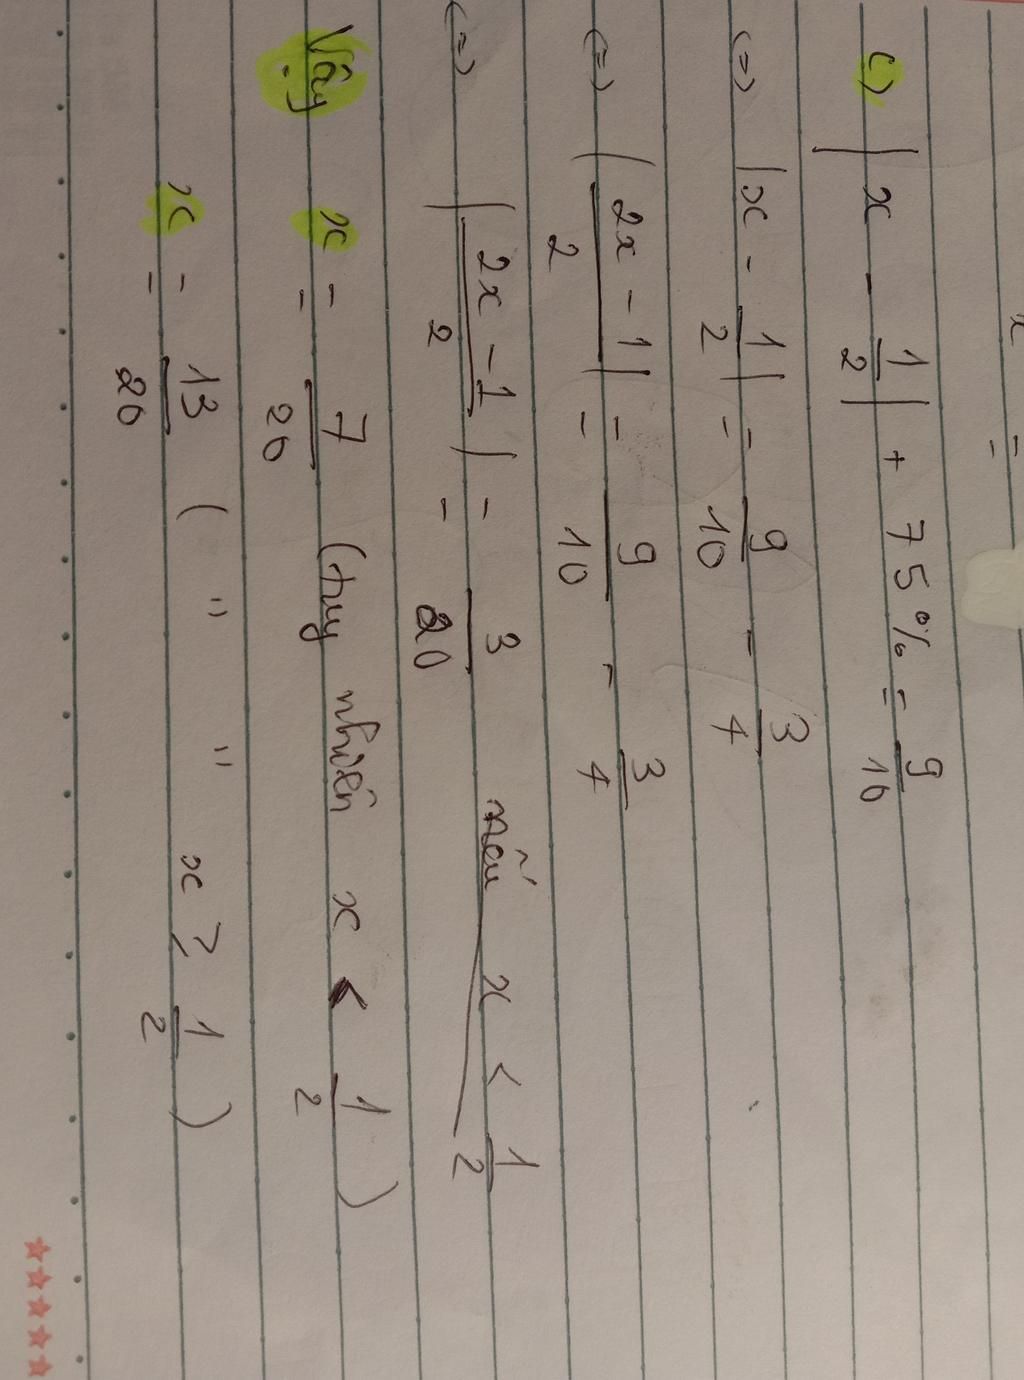 x =
c) |x - 1/2| + 75% = 9/10
(=) |x - 1/2| = 9/10 - 3/4
(=) |2x - 1/2| = 9/10 - 3/4
(=) |2x - 1/2| = 3/20 nếu x < 1/2
Vậy x = 7/20 (tuy nhiên x < 1/2)
x = 13/20 ( " " x ≥ 1/2)